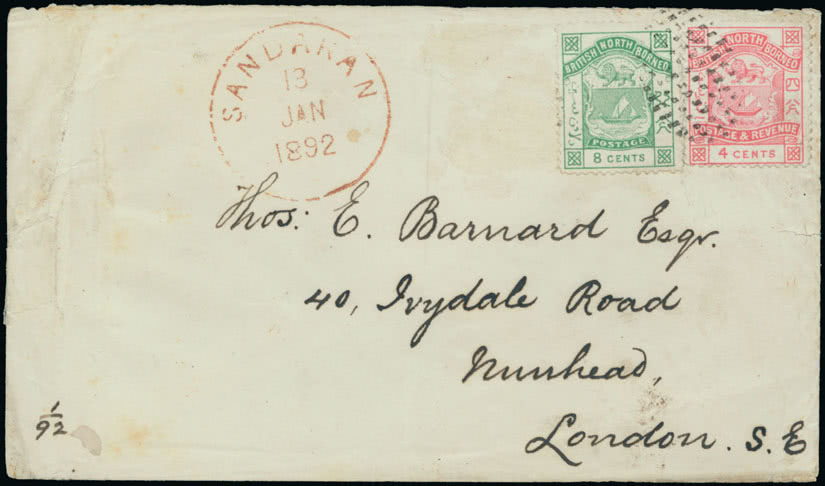 SANDAKAN
13
JAN
1892
BRITISH NORTH BORNEO
POSTAGE
8 CENTS
BRITISH NORTH BORNEO
四分
POSTAGE & REVENUE
4 CENTS
Thos: E. Barnard Esqr.
40, Ivydale Road
Nunhead,
London. S.E
1/92